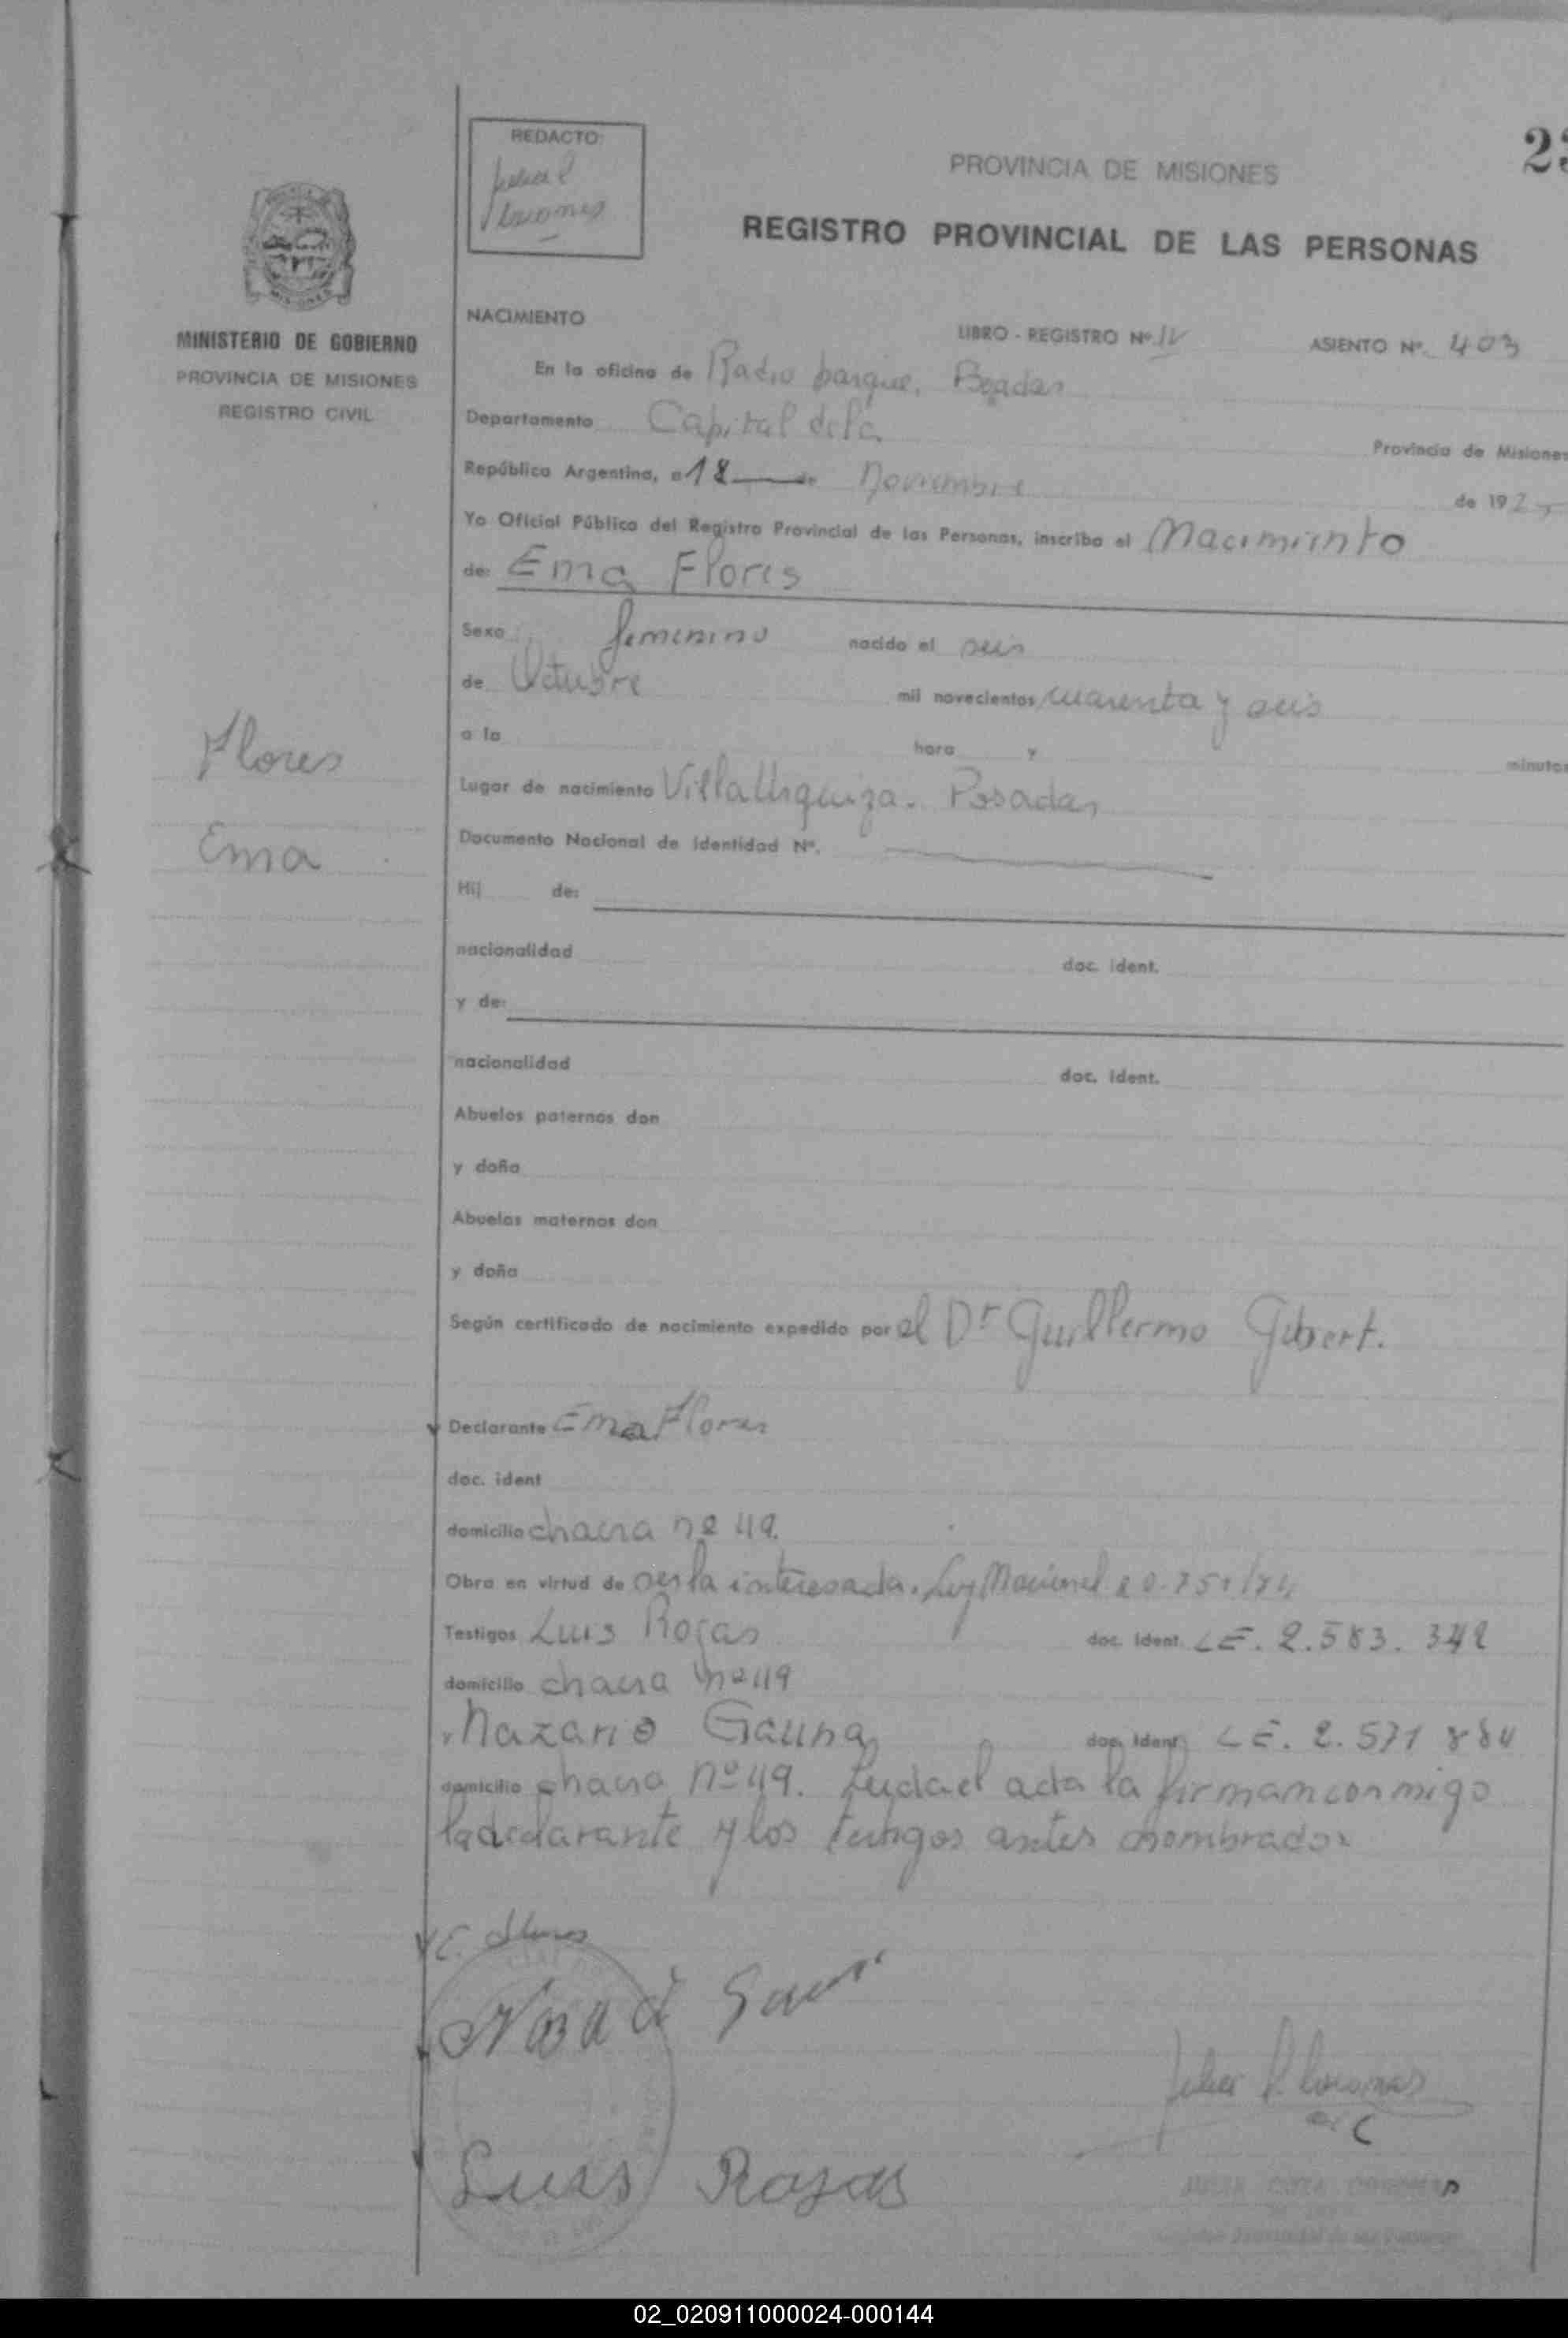 REDACTO:
PROVINCIA DE MISIONES
REGISTRO PROVINCIAL DE LAS PERSONAS
MISIONES
MINISTERIO DE GOBIERNO
PROVINCIA DE MISIONES
REGISTRO CIVIL
NACIMIENTO
LIBRO - REGISTRO Nº IV ASIENTO Nº. 403
En la oficina de Radio parque.
Departamento Capital de la Provincia de Misiones
República Argentina, a 18 de Noviembre de 197
Yo Oficial Público del Registro Provincial de las Personas, inscribo el Nacimiento
de: Ema Flores
Sexo femenino nacido el seis
de Octubre mil novecientos cuarenta y seis
a la hora y minutos
Flores
Lugar de nacimiento Villa Urquiza. Posadas
Documento Nacional de Identidad Nº.
Ema
Hij de:
nacionalidad doc. ident.
y de:
nacionalidad doc. ident.
Abuelos paternos don
y doña
Abuelos maternos don
y doña
Según certificado de nacimiento expedido por el Dr Guillermo Gibert.
Declarante Ema Flores
doc. ident
domicilio chacra nº 49.
Obra en virtud de ser la interesada. Ley Nacional 20.751/74
Testigos Luis Rojas doc. ident. LE. 2.583.342
domicilio chacra nº 49
y Nazario Gauna doc. ident. LE. 2.571 884
domicilio chacra nº 49. Leyda el acta la firman conmigo
la declarante y los testigos antes nombrados
E. Flores
Luis Rojas
02_020911000024-000144